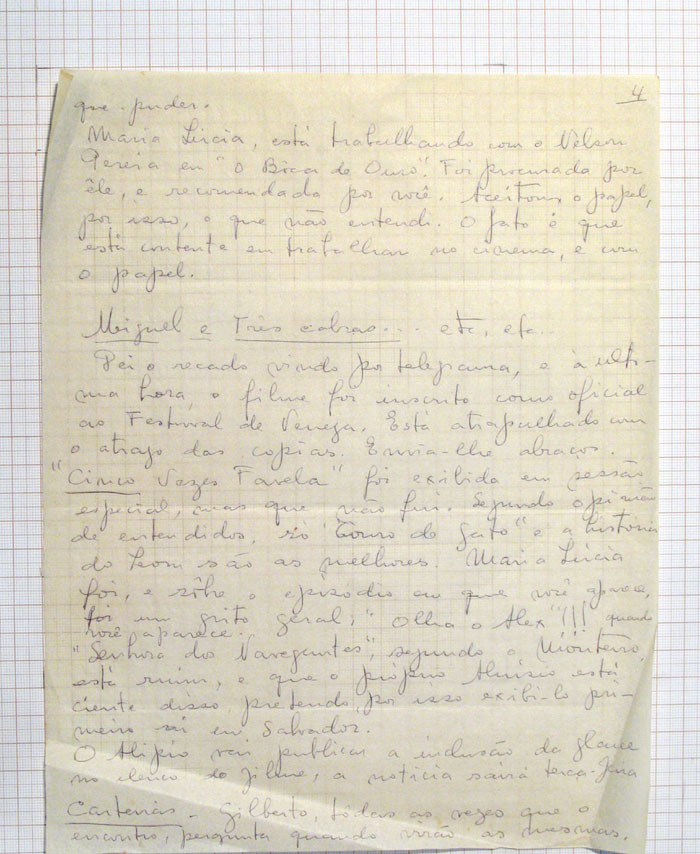 4
que puder.
Maria Lúcia, está trabalhando com o Nelson
Pereira em "O Boca de Ouro". Foi procurada por
êle, e recomendada por você. Aceitou o papel,
por isso, o que não entendi. O fato é que
está contente em trabalhar no cinema, e com
o papel.
Miguel e Três cabras... etc, etc...
Dei o recado vindo por telegrama, e à ulti-
ma hora, o filme foi inscrito como oficial
ao Festival de Veneza. Está atrapalhado com
o atrazo das copias. Envia-lhe abraços.
"Cinco Vezes Favela" foi exibida em sessão
especial, mas que não fui. Segundo opinião
de entendidos, só "Couro do gato" e a historia
do Leon são as melhores. Maria Lúcia
foi, e sôbre o episódio em que você aparece,
foi um grito geral: "Olha o Alex"!!! quando
você aparece.
"Senhora dos Navegantes", segundo o Monteiro
está ruim, e que o próprio Aluísio está
ciente disso, pretende por isso exibi-lo pri-
meiro aí em Salvador.
O Alipio vai publicar a inclusão da Glauce
no elenco do filme, a noticia sairá terça-feira
Carteiras - Gilberto, tôdas as vezes que o
encontro, pergunta quando virão as mesmas.